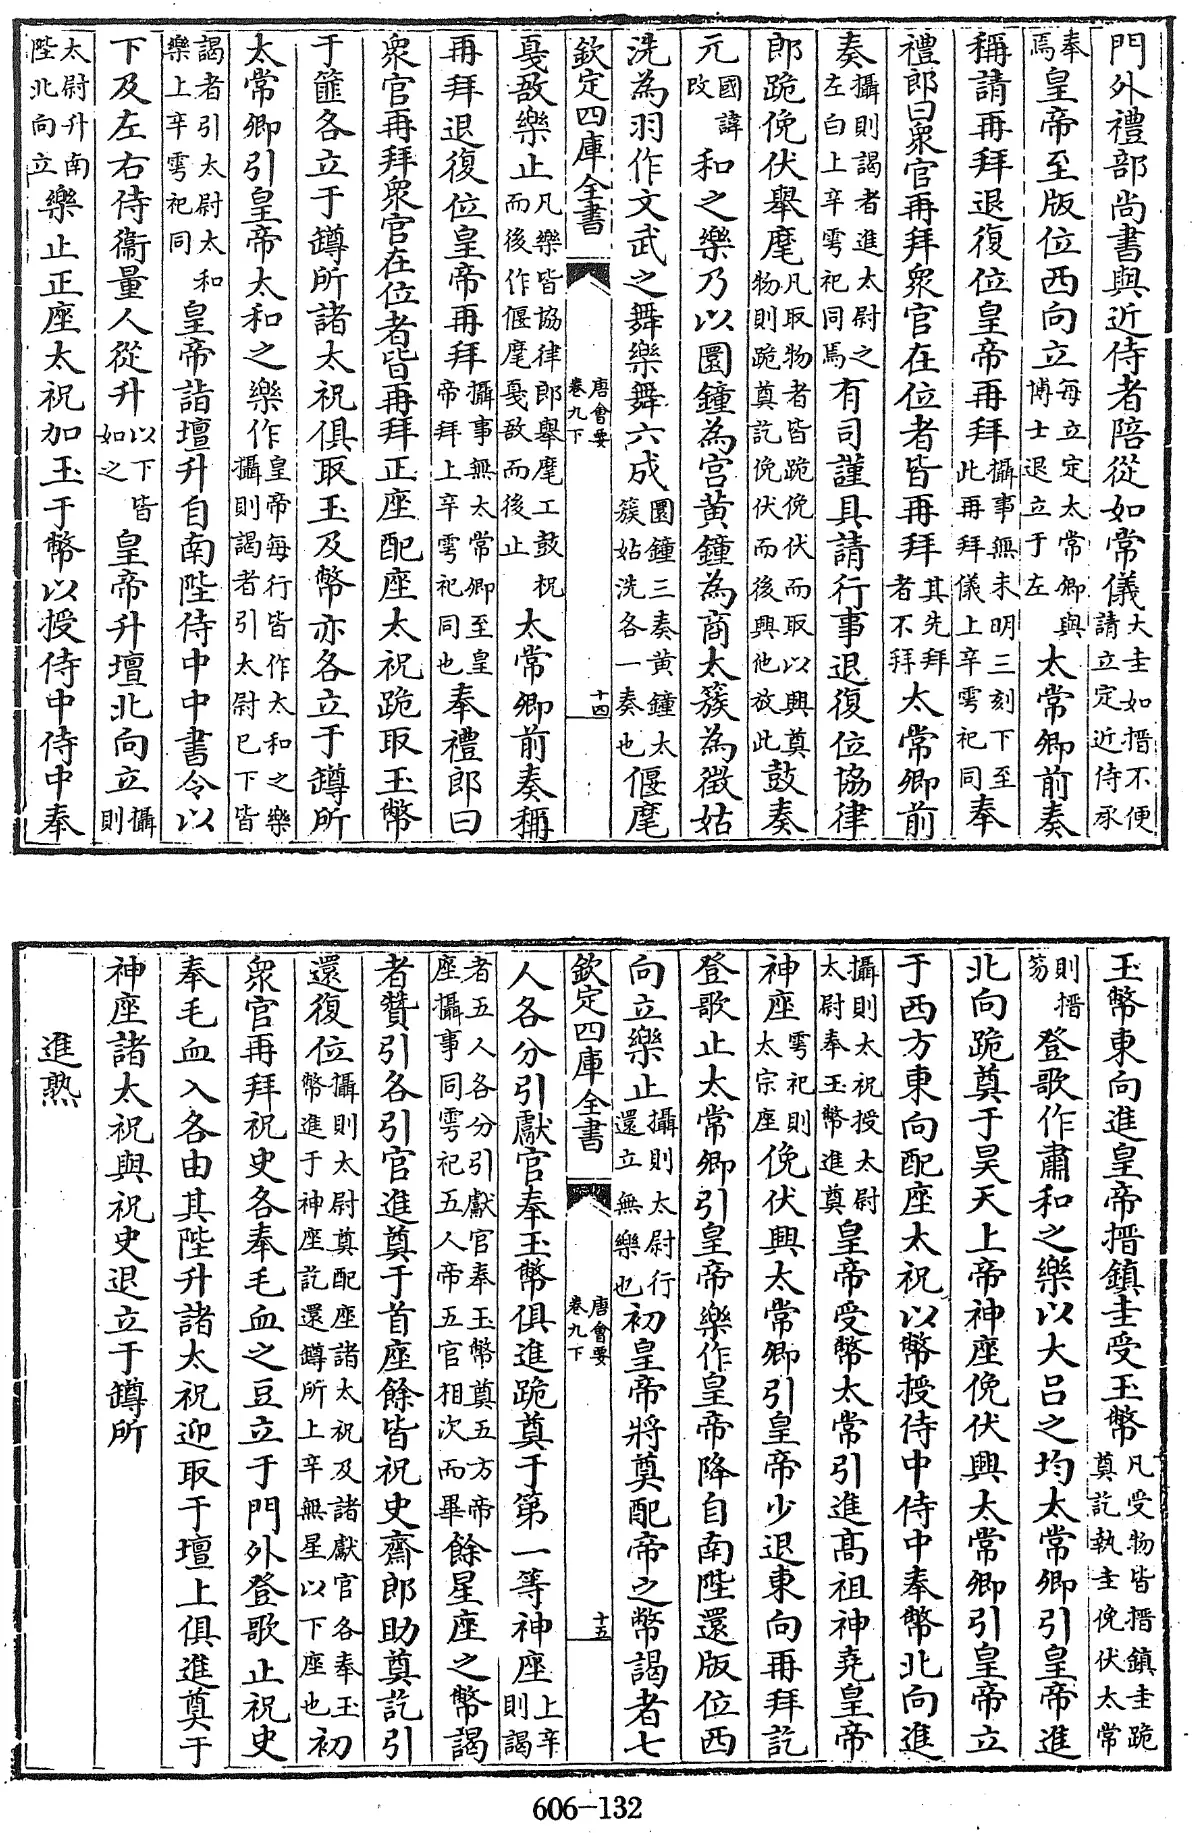 門外禮部尚書與近侍者陪從如常儀大圭如搢不便請立定近侍承
奉焉皇帝至版位西向立每立定太常卿與博士退立于左太常卿前奏
稱請再拜退復位皇帝再拜攝事無未明三刻下至此再拜儀上辛雩祀同奉
禮郎曰衆官再拜衆官在位者皆再拜其先拜者不拜太常卿前
奏攝則謁者進太尉之左白上辛雩祀同焉有司謹具請行事退復位協律
郎跪俛伏舉麾凡取物者皆跪俛伏而取以興奠物則跪奠訖俛伏而後興他放此鼓奏
元國諱改和之樂乃以圜鐘為宫黄鐘為商太簇為徵姑
洗為羽作文武之舞樂舞六成圜鐘三奏黄鐘太簇姑洗各一奏也偃麾
欽定四庫全書 唐會要卷九下 十四
戞敔樂止凡樂皆協律郎舉麾工鼓柷而後作偃麾戞敔而後止太常卿前奏稱
再拜退復位皇帝再拜攝事無太常卿至皇帝拜上辛雩祀同也奉禮郎曰
衆官再拜衆官在位者皆再拜正座配座太祝跪取玉幣
于篚各立于罇所諸太祝俱取玉及幣亦各立于罇所
太常卿引皇帝太和之樂作皇帝每行皆作太和之樂攝則謁者引太尉已下皆
謁者引太尉太和樂上辛雩祀同皇帝詣壇升自南陛侍中中書令以
下及左右侍衞量人從升以下皆如之皇帝升壇北向立攝則
太尉升南陛北向立樂止正座太祝加玉于幣以授侍中侍中奉
玉幣東向進皇帝搢鎮圭受玉幣凡受物皆搢鎮圭跪奠訖執圭俛伏太常
則搢笏登歌作肅和之樂以大呂之均太常卿引皇帝進
北向跪奠于昊天上帝神座俛伏興太常卿引皇帝立
于西方東向配座太祝以幣授侍中侍中奉幣北向進
攝則太祝授太尉太尉奉玉幣進奠皇帝受幣太常引進髙祖神堯皇帝
神座雩祀則太宗座俛伏興太常卿引皇帝少退東向再拜訖
登歌止太常卿引皇帝樂作皇帝降自南陛還版位西
向立樂止攝則太尉行還立無樂也初皇帝將奠配帝之幣謁者七
欽定四庫全書 唐會要卷九下 十五
人各分引獻官奉玉幣俱進跪奠于第一等神座上辛則謁
者五人各分引獻官奉玉幣奠五方帝座攝事同雩祀五人帝五官相次而畢餘星座之幣謁
者贊引各引官進奠于首座餘皆祝史齋郎助奠訖引
還復位攝則太尉奠配座諸太祝及諸獻官各奉玉幣進于神座訖還罇所上辛無星以下座也初
衆官再拜祝史各奉毛血之豆立于門外登歌止祝史
奉毛血入各由其陛升諸太祝迎取于壇上俱進奠于
神座諸太祝與祝史退立于罇所
進熟
606-132